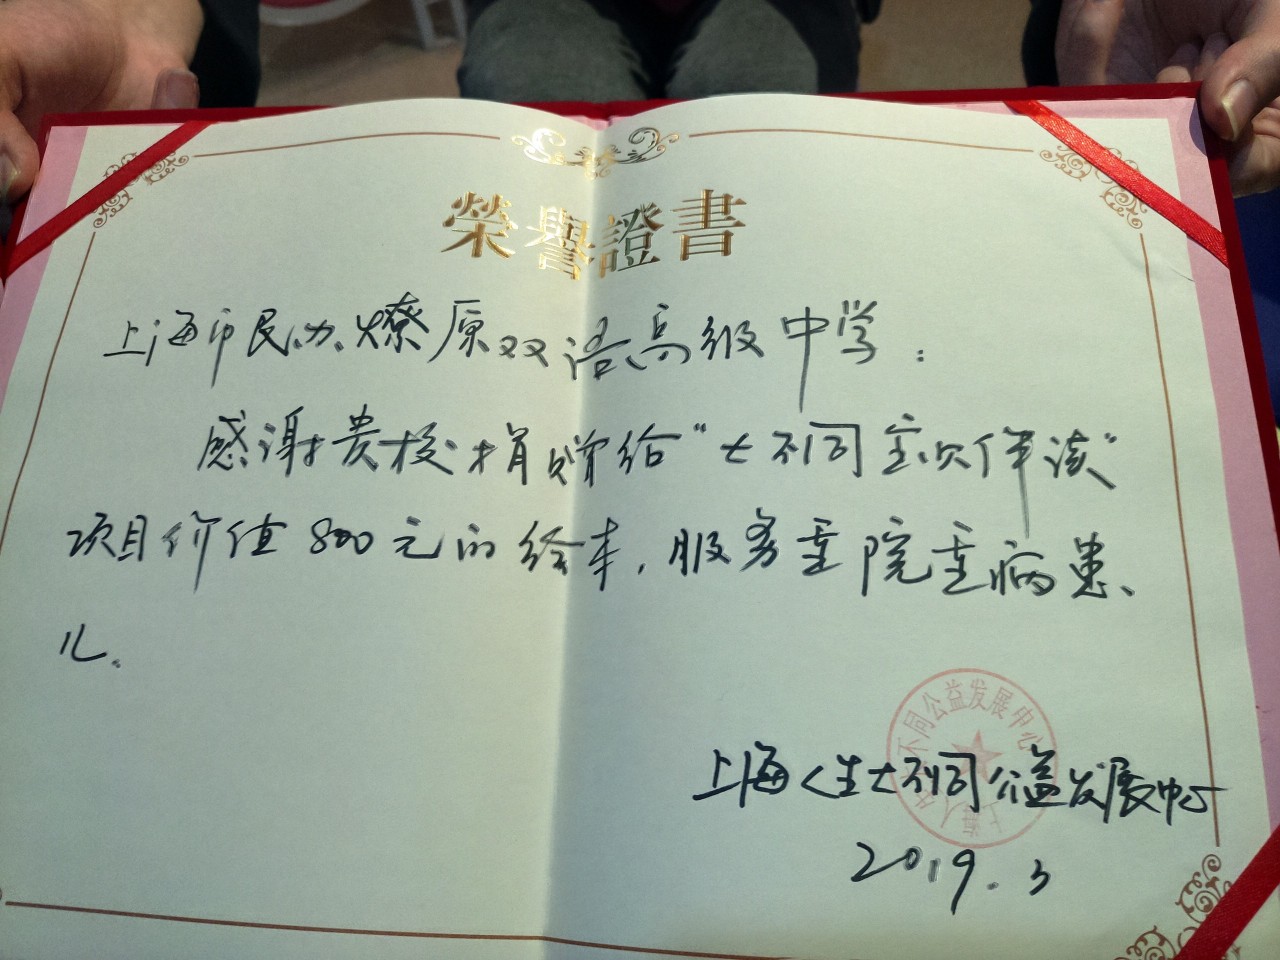 榮譽證書
上海市民办燎原双语高级中学：
感谢贵校捐赠给“大不同童伴读”
项目价值800元的绘本，服务重院重病患
儿。
上海人生大不同公益发展中心
上海人生大不同公益发展中心
2019.3